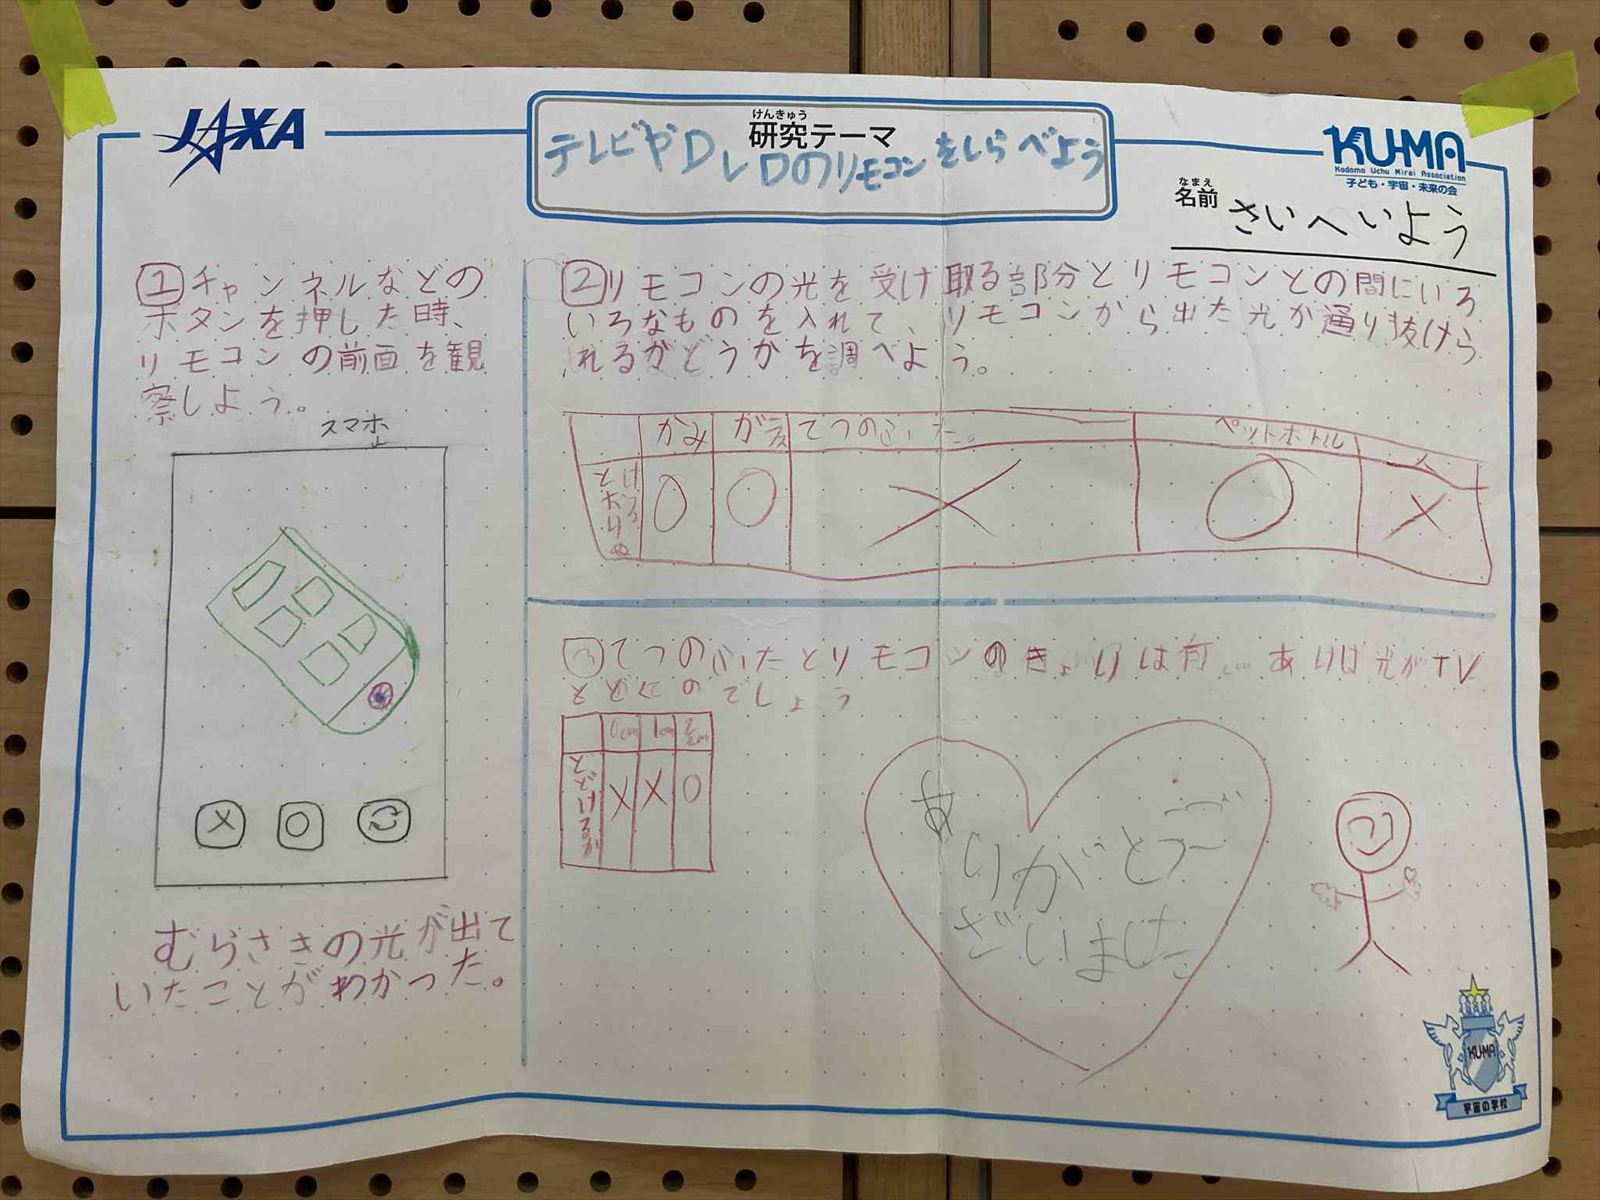 JAXA
けんきゅう
研究テーマ
テレビやDVDのリモコンをしらべよう
KU-MA
Kodomo Uchu Mirai Association
子ども・宇宙・未来の会
なまえ
名前
さいへいよう
①チャンネルなどの
ボタンを押した時、
リモコンの前面を観
察しよう。
スマホ
むらさきの光が出て
いたことがわかった。
②リモコンの光を受け取る部分とリモコンとの間にいろ
いろなものを入れて、リモコンから出た光が通り抜けら
れるかどうかを調べよう。
かみ がラス てつのふた。 ペットボトル 人
とおりぬ
けるか
○ ○ × ○ ×
③てつのふたとリモコンのきょりは何 あれば光がTV
とどくのでしょう
0cm 1cm 2cm
とどけるか
× × ○
ありがとうご
ざいました
KU-MA
宇宙の学校